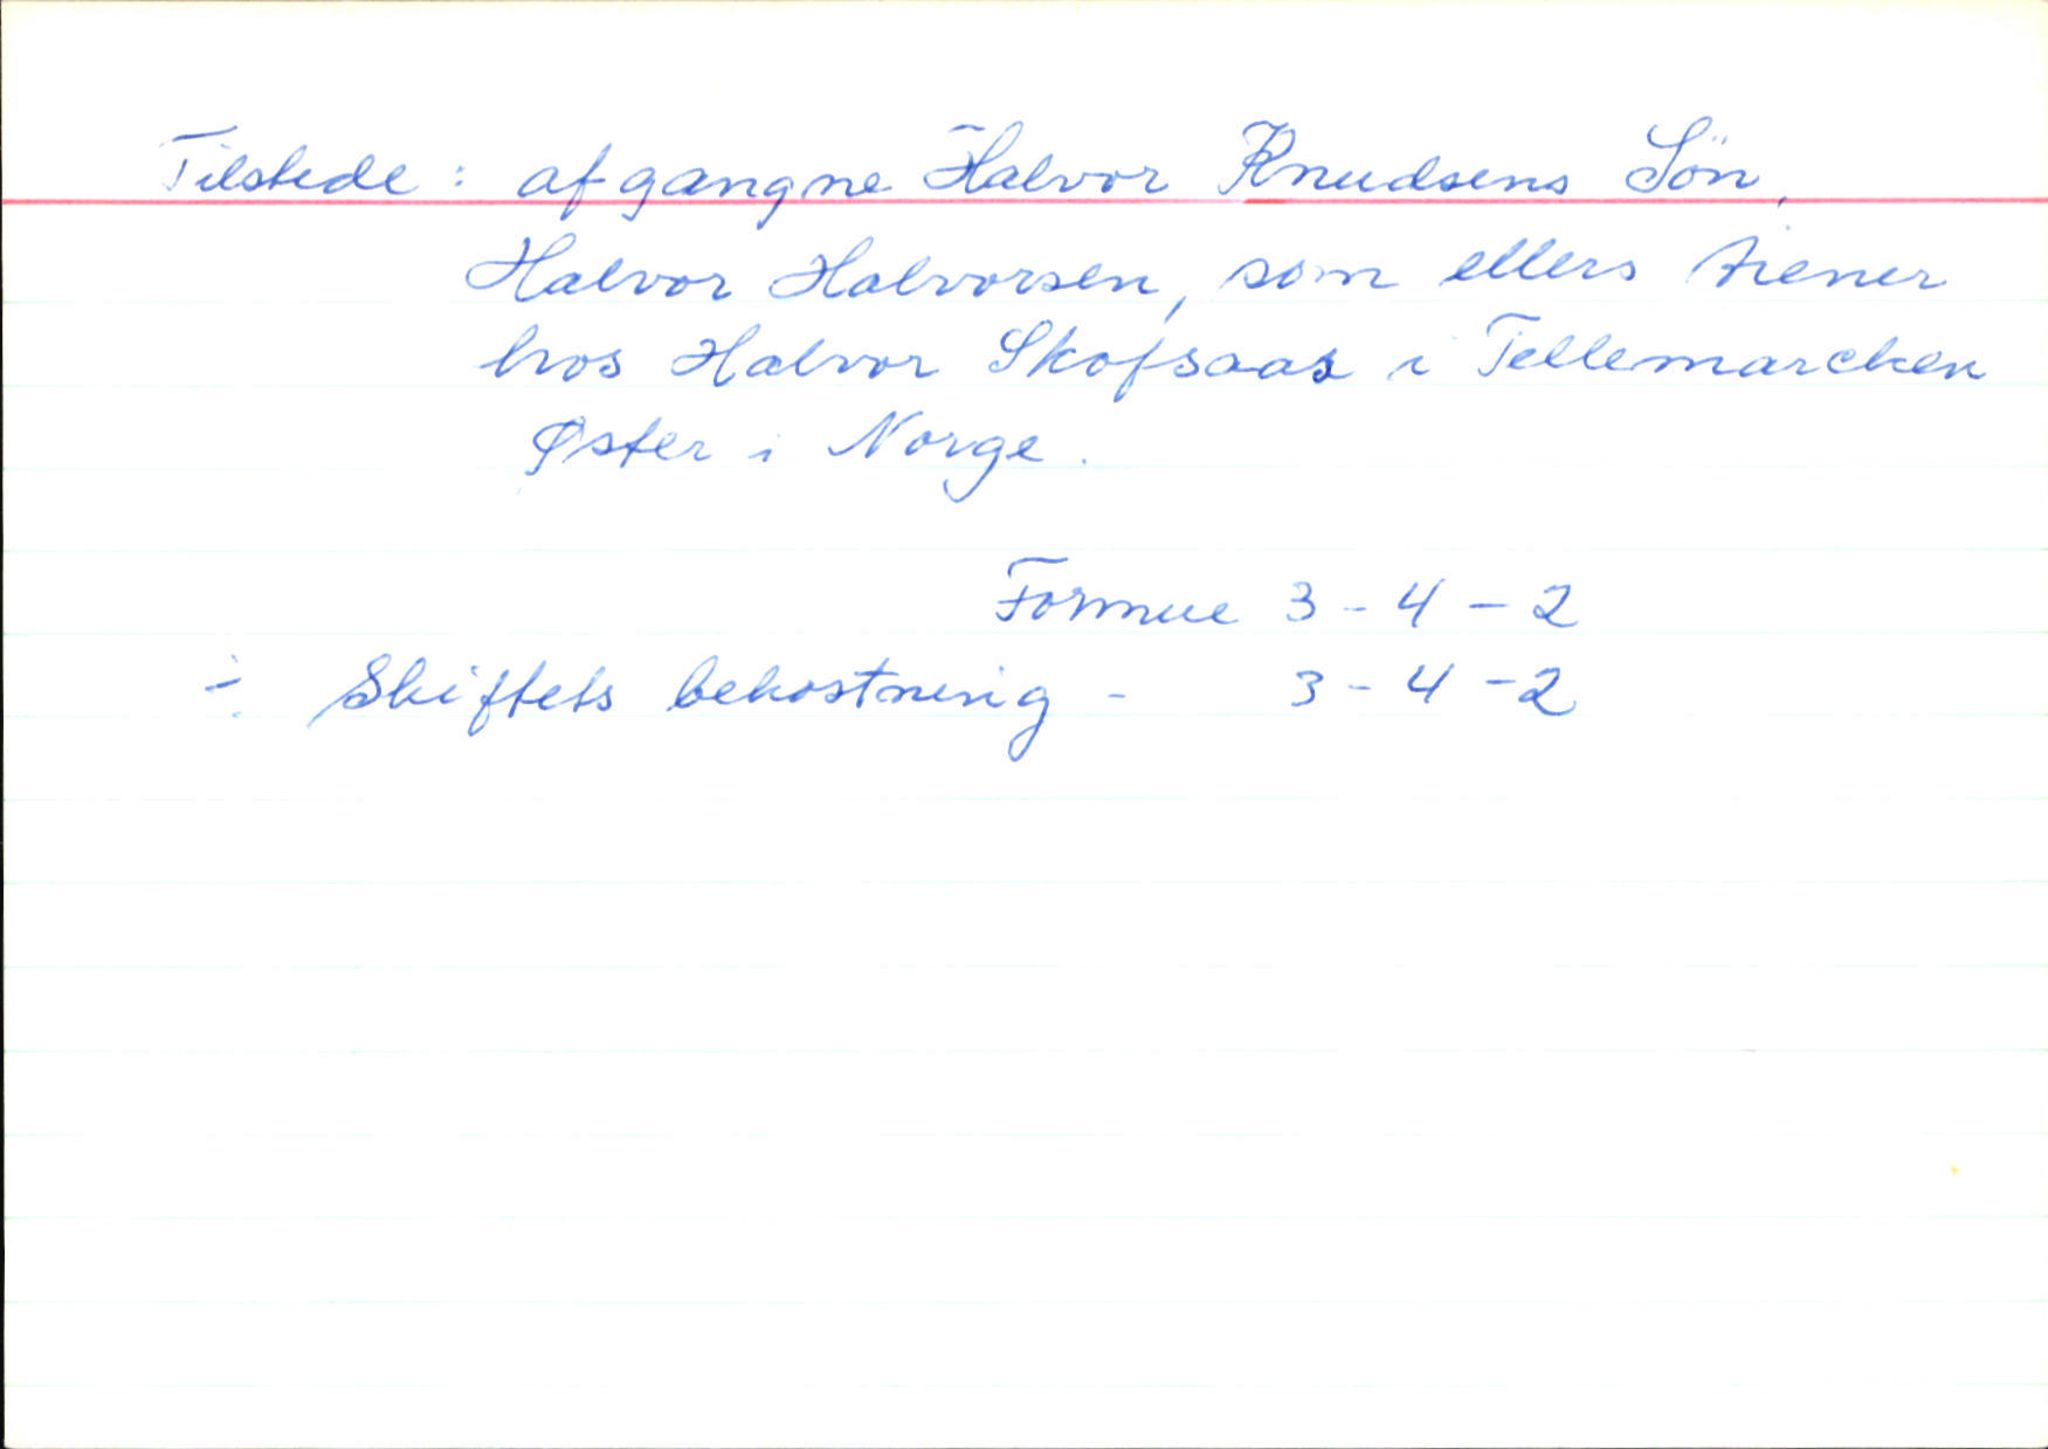 Tilstede: afgangne Halvor Knudsens Sön,
Halvor Halvorsen, som ellers tiener
hos Halvor Skofsaas i Tellemarcken
Øster i Norge.
Formue 3-4-2
÷ Skiftets bekostning - 3-4-2